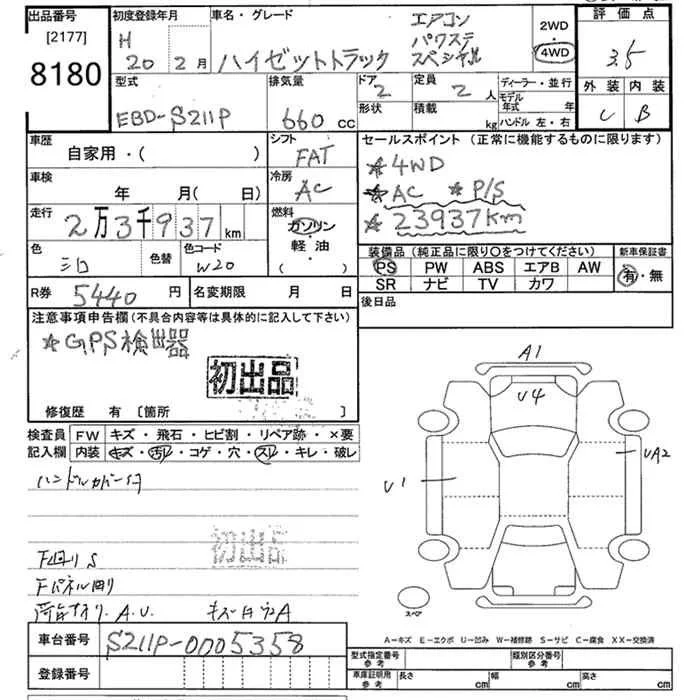 出品番号
[2177]
8180
初度登録年月
H
20年 2月
車名・グレード
ハイゼットトラック
エアコン
パワステ
スペシャル
2WD
・
4WD
評価点
3.5
外装 内装
C B
型式
EBD-S211P
排気量
660 cc
ドア
2
定員
2人
形状
積載
kg
ディーラー・並行
モデル
年式 年
ハンドル 左・右
車歴
自家用・( )
シフト
FAT
セールスポイント (正常に機能するものに限ります)
☆4WD
☆AC ☆P/S
☆23937Km
車検
年 月( 日)
冷房
AC
走行
2万3千937km
燃料
ガソリン
・
軽油
( )
色
シロ
色替
色コード
W20
装備品(純正品に限り〇をつけてください)
新車保証書
PS PW ABS エアB AW
SR ナビ TV カワ
有・無
R券 5440円
名変期限 月 日
後日品
注意事項申告欄(不具合内容等は具体的に記入して下さい)
☆GPS検出器
初出品
修復歴 有 [箇所 ]
検査員
記入欄
FW キズ・飛石・ヒビ割・リペア跡・×要
内装 キズ・汚れ・コゲ・穴・スレ・キレ・破レ
ハンドルカバー付
初出品
下回りS
A.U.
A1
U4
U1
UA2
スペア
A-キズ E-エクボ U-凹み W-補修跡 S-サビ C-腐食 XX-交換済
車台番号
S211P-0005358
登録番号
型式指定番号
参考
類別区分番号
参考
車庫証明用
参考
長さ cm
幅 cm
高さ cm